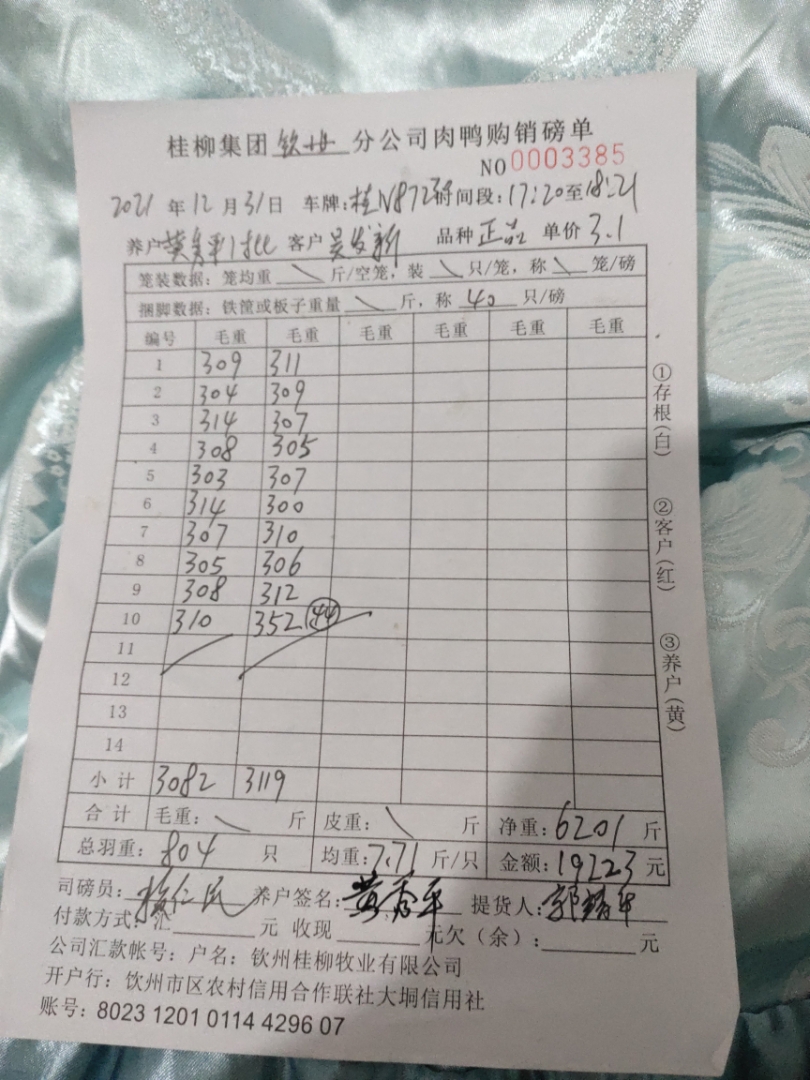 桂柳集团 钦州 分公司肉鸭购销磅单
NO 0003385
2021 年 12 月 31 日 车牌:桂N8723 时间段:17:20至18:21
养户 黄秀平 客户 吴发新 品种 正品 单价 3.1
笼装数据:笼均重 \ 斤/空笼,装 \ 只/笼,称 \ 笼/磅
捆脚数据:铁筐或板子重量 \ 斤,称 40 只/磅
编号 毛重 毛重 毛重 毛重 毛重 毛重
1 309 311
2 304 309
3 314 307
4 308 305
5 303 307
6 314 300
7 307 310
8 305 306
9 308 312
10 310 352 44
11
12
13
14
小计 3082 3119
合计 毛重: \ 斤 皮重: \ 斤 净重:6201 斤
总羽重:804 只 均重:7.71 斤/只 金额:19223 元
司磅员: 仁民 养户签名:黄秀平 提货人:
付款方式:汇 元 收现 元欠(余): 元
公司汇款帐号:户名:钦州桂柳牧业有限公司
开户行:钦州市区农村信用合作联社大垌信用社
账号:8023 1201 0114 4296 07
①存根(白)
②客户(红)
③养户(黄)